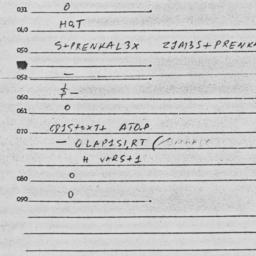 031 0
040 HQT
050 S+PRENKAL3X 21A13S+PRENKA
052 —
060 + —
061 0
070 CP1S+OXT+ ATO.P
— QLAP1S1,RT (
H VARS+1
080 0
090 0